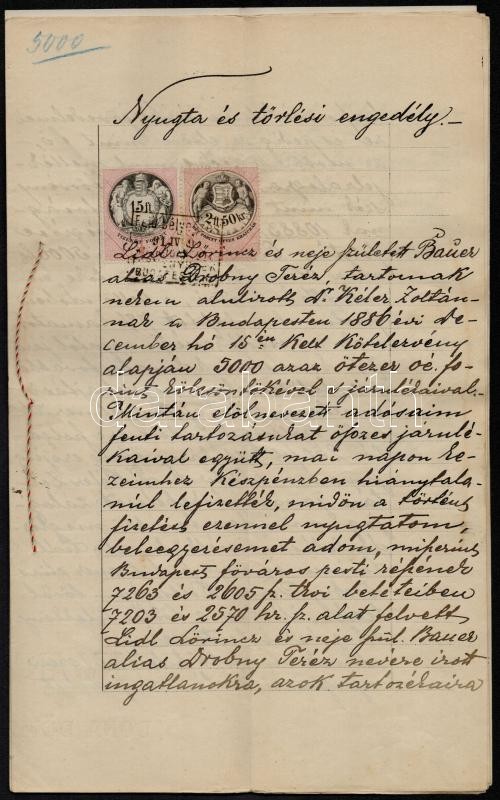 5000
Nyugta és törlési engedély.
15 ft
2 ft 50 kr
91 IV
BUDAPEST
Lidl Lörincz és neje született Bauer
alias Drobny Teréz tartoznak
nekem alulirott Dr. Kéler Zoltán-
nak a Budapesten 1886 évi de-
cember hó 15én kelt kötelezvény
alapján 5000 azaz ötezer oé. fo-
rint kölcsöntőkével s járulékaival.
Miután elölnevezett adósaim
fenti tartozásukat összes járulé-
kaival együtt, mai napon ke-
zeimhez készpénzben hiánytala-
nul lefizették, midőn a történt
fizetést ezennel nyugtatom,
beleegyezésemet adom, miszerint
Budapest főváros pesti részének
7263 és 2605 p. tkvi betéteiben
7203 és 2570 hr. sz. alatt felvett
Lidl Lörincz és neje szül. Bauer
alias Drobny Teréz nevére irott
ingatlanokra, azok tartozékaira
darabanth